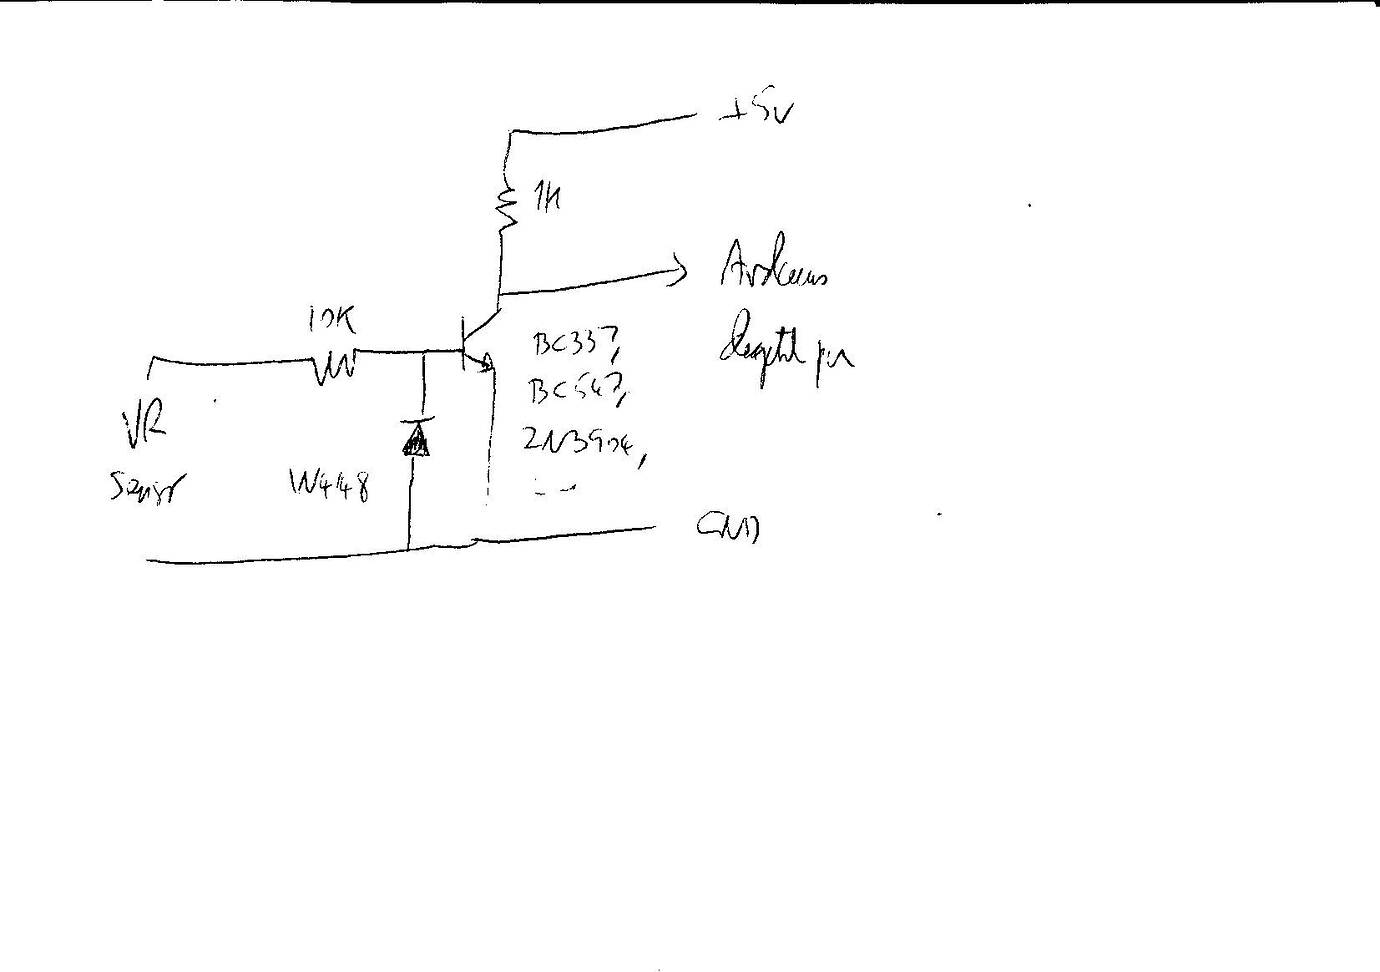 +5v
1K
Arduino
10K
digital pin
BC337,
BC547,
VR
2N3904,
Sensor
1N4448
GND